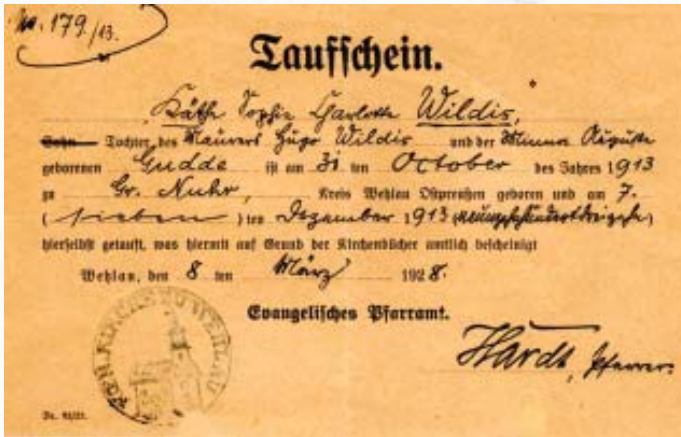 No. 179/13.
Taufschein.
Käthe Sophie Charlotte Wildis,
Sohn Tochter des Maurers Hugo Wildis und der Minna Auguste
geborenen Gudde ist am 31 ten October des Jahres 1913
zu Gr. Nuhr, Kreis Wehlau Ostpreußen geboren und am 7.
( sieben ) ten Dezember 1913 (neunzehnhundertdreizehn)
hierselbst getauft, was hiermit auf Grund der Kirchenbücher amtlich bescheinigt
Wehlau, den 8 ten März 1928.
Evangelisches Pfarramt.
Hardt, Pfarrer.
KIRCHE ZU WEHLAU